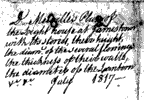 Dr Melville's Plan of
the Light house at Jamestown
with its stories, their height
the diamr of the several floorings
the thickness of their walls,
the diameter of the Lanthorn
&c &c. July 1817 —